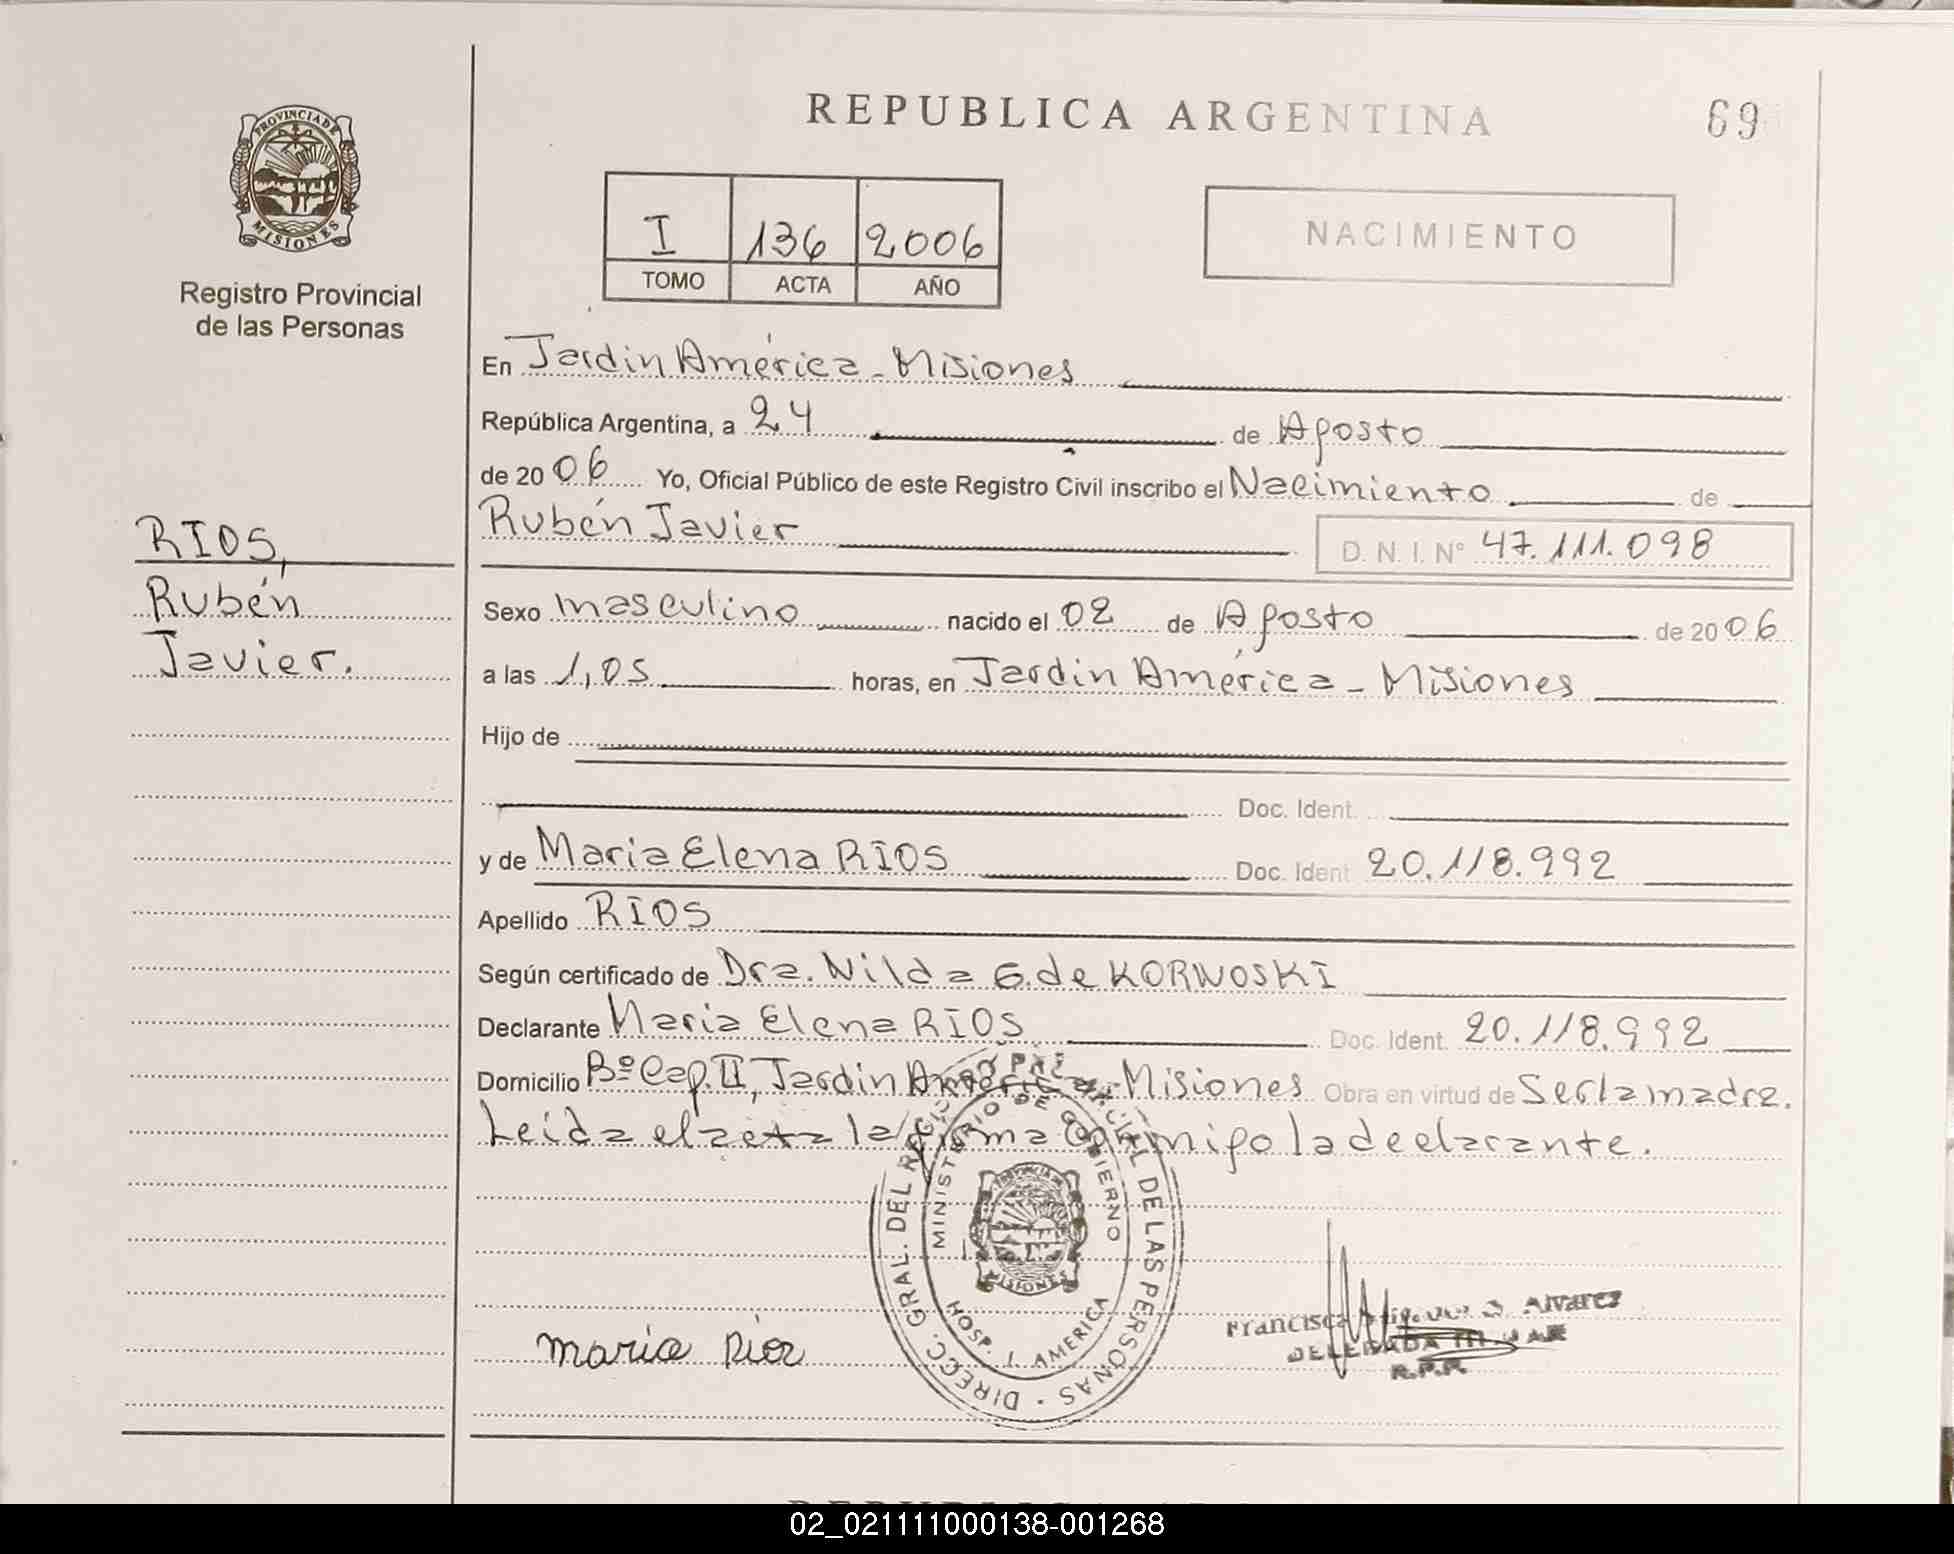 REPUBLICA ARGENTINA
69
PROVINCIA DE
MISIONES
Registro Provincial
de las Personas
I 136 2006
TOMO ACTA AÑO
NACIMIENTO
En Jardin América - Misiones
República Argentina, a 24 de Agosto
de 2006 Yo, Oficial Público de este Registro Civil inscribo el Nacimiento de
Rubén Javier D. N. I. Nº 47.111.098
RIOS,
Rubén
Javier.
Sexo masculino nacido el 02 de Agosto de 2006
a las 1,05 horas, en Jardin América - Misiones
Hijo de
Doc. Ident.
y de Maria Elena RIOS Doc. Ident 20.118.992
Apellido RIOS
Según certificado de Dra. Nilda G. de KORNOSKI
Declarante Maria Elena RIOS Doc. Ident. 20.118.992
Domicilio Bº Cap. II, Jardin América, Misiones Obra en virtud de Ser la madre.
Leida el acta la firma conmigo la declarante.
DIRECC. GRAL. DEL REGISTRO PROVINCIAL DE LAS PERSONAS
MINISTERIO DE GOBIERNO
HOSP J. AMERICA
MISIONES
maria Rios
Francisca Alvarez
DELEGADA
R.P.P.
02_021111000138-001268